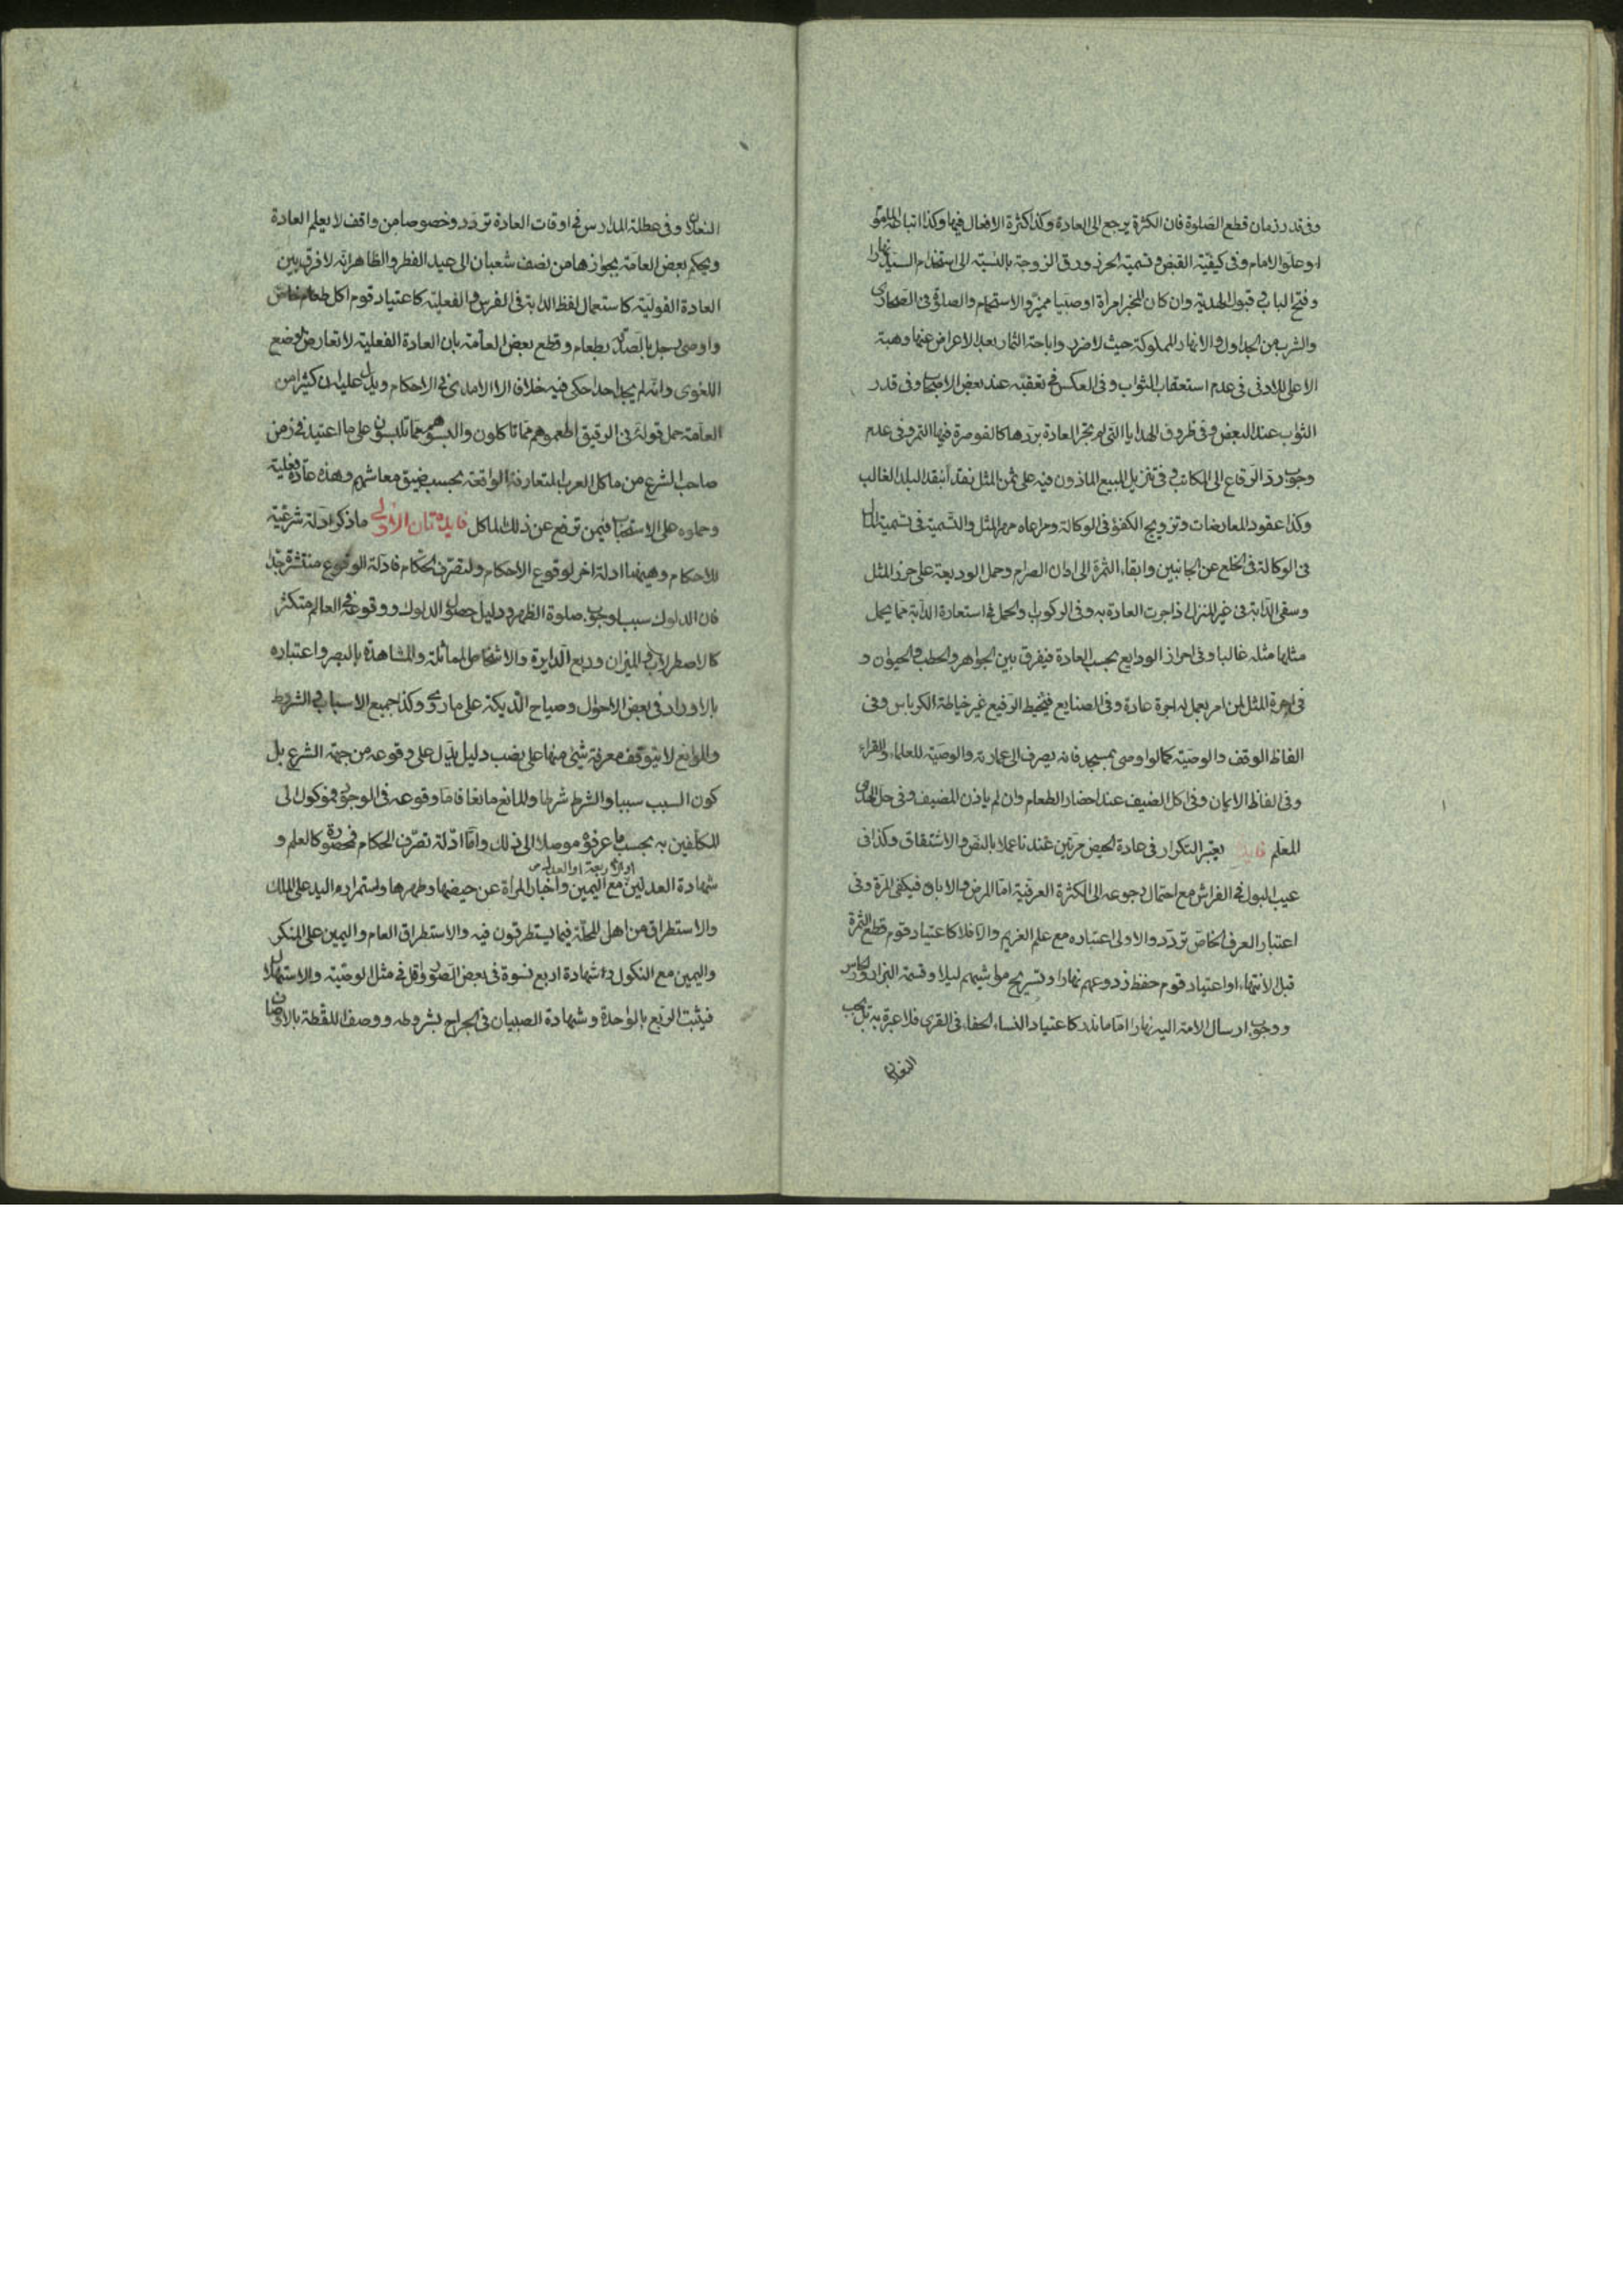 وفى قدر زمان قطع الصلوة فان الكثرة يرجع الى العادة وكذا كثرة الافعال فيها وكذا تباطؤ المأموم
او علو الامام وفى كيفية القبض وتسمية الحرز ورق الزوجة بالنسبة الى استخدام السيد نهارا
وفتح الباب فى قبول الهدية وان كان المخبر امرأة او صبيا مميزا والاستحمام والصلوة فى الصحارى
والشرب من الجداول والانهار المملوكة حيث لا ضرر واباحة الثمار بعد الاعراض عنها وهبة
الاعلى للادنى فى عدم استعقاب الثواب وفى العكس فى تعقبه عند بعض الاصحاب وفى قدر
الثواب عند البعض وفى ظروف الهدايا التى لم يجر العادة بردها كالقوصرة فيها التمر وفى عدم
وجوب رد الرقاع الى المكاتب وفى تنزيل المبيع الماذون فيه على ثمن المثل نقدا بنقد البلد الغالب
وكذا عقود المعاوضات وتزويج الكفؤ فى الوكالة ومراعاه مهر المثل والتسمية فى تسمية
فى الوكالة فى الخلع عن الجانبين وابقاء الثمرة الى اوان الصرام وحمل الوديعة على حرز المثل
وسقى الدابة فى غير المنزل اذا جرت العادة به وفى الركوب والحمل فى استعارة الدابة مما يحمل
مثلها مثله غالبا وفى احراز الودايع بحسب العادة فيفرق بين الجواهر والحطب والحيوان و
فى اجرة المثل لمن امر بعمل له اجرة عادة وفى الصنايع فيخيط الرفيع غير خياطة الكرباس وفى
الفاظ الوقف والوصية كما لو اوصى بمسجد فانه يصرف الى عمارته والوصية للعلماء والقراء
وفى الفاظ الايمان وفى اكل الضيف عند احضار الطعام وان لم ياذن المضيف وفى حل الهدى
للمعلم فايدة يعتبر التكرار فى عادة الحيض مرتين عندنا عملا بالنص والاشتقاق وكذا فى
عيب البول فى الفراش مع احتمال رجوعه الى الكثرة العرفية اما المرض والاباق فيكفى المرة وفى
اعتبار العرف الخاص تردد والاولى اعتباره مع علم الغريم والا فلا كاعتياد قوم قطع الثمرة
قبل الانتهاء او اعتياد قوم حفظ زروعهم نهارا وتسريح مواشيهم ليلا وقسمة البزار
ووجوب ارسال الامة اليه نهارا اما ما ندر كاعتياد النساء الحفاء فى القرى فلا عبرة به بل يجب
النعلان
النعلان وفى عطلة المدارس فى اوقات العادة تردد وخصوصا من واقف لا يعلم العادة
ويحكم بعض العامة بجوازها من نصف شعبان الى عيد الفطر والظاهر انه لا فرق بين
العادة القولية كاستعمال لفظ الدابة فى الفرس والفعلية كاعتياد قوم اكل طعام خاص
واوصى رجل بالصدقة بطعام وقطع بعض العامة بان العادة الفعلية لا تعارض الوضع
اللغوى وانه لم يجد احدا حكى فيه خلافا الا الامدى فى الاحكام ويدل عليه ان كثيرا من
العامة حمل قوله فى الرقيق اطعموهم مما تاكلون والبسوهم مما تلبسون على ما اعتيد فى زمن
صاحب الشرع من ماكل العرب المتعارفة الواقعة بحسب ضيق معاشهم وهذه عادة فعلية
وحملوه على الاستحباب فيمن ترفع عن ذلك الماكل فايدتان الاولى ما ذكر ادلة شرعية
للاحكام وهيهنا ادلة اخر لوقوع الاحكام ولتصرف الحكام فادلة الوقوع منتشرة جدا
فان الدلوك سبب لوجوب صلوة الظهر ودليل حصول الدلوك ووقوعه فى العالم متكثر
كالاصطرلاب والميزان وربع الدايرة والاشخاص الماثلة والمشاهدة بالبصر واعتباره
بالاوراد فى بعض الاحوال وصياح الديكة على ما روى وكذا جميع الاسباب والشروط
والموانع لا يتوقف معرفة شئ منها على نصب دليل يدل على وقوعه من جهة الشرع بل
كون السبب سببا والشرط شرطا والمانع مانعا فاما وقوعه فى الوجود فموكول الى
المكلفين به بحسب ما عرفوه موصلا الى ذلك واما ادلة تصرف الحكام فمحصورة كالعلم و
شهادة العدلين او الاربعة او العدل مع اليمين واخبار المرأة عن حيضها وطهرها واستمرار اليد على الملك
والاستطراق من اهل المحلة فيما يستطرقون فيه والاستطراق العام واليمين على المنكر
واليمين مع النكول وشهادة اربع نسوة فى بعض الصور واقل فى مثل الوصية والاستهلال
فيثبت الربع بالواحدة وشهادة الصبيان فى الجراح بشروطه ووصف اللقطة بالاوصاف